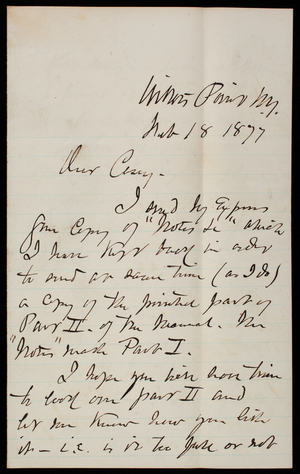 Willets Point N.Y.
Feb 18 1877
Dear Casey.
I send by Express
your copy of "Notes &c" which
I have kept back in order
to send at same time (as I do)
a copy of the printed part of
Part II. of the Manual. The
"Notes" make Part I.
I hope you will have time
to look over part II and
let me know how you like
it - i.e. is it too full or not